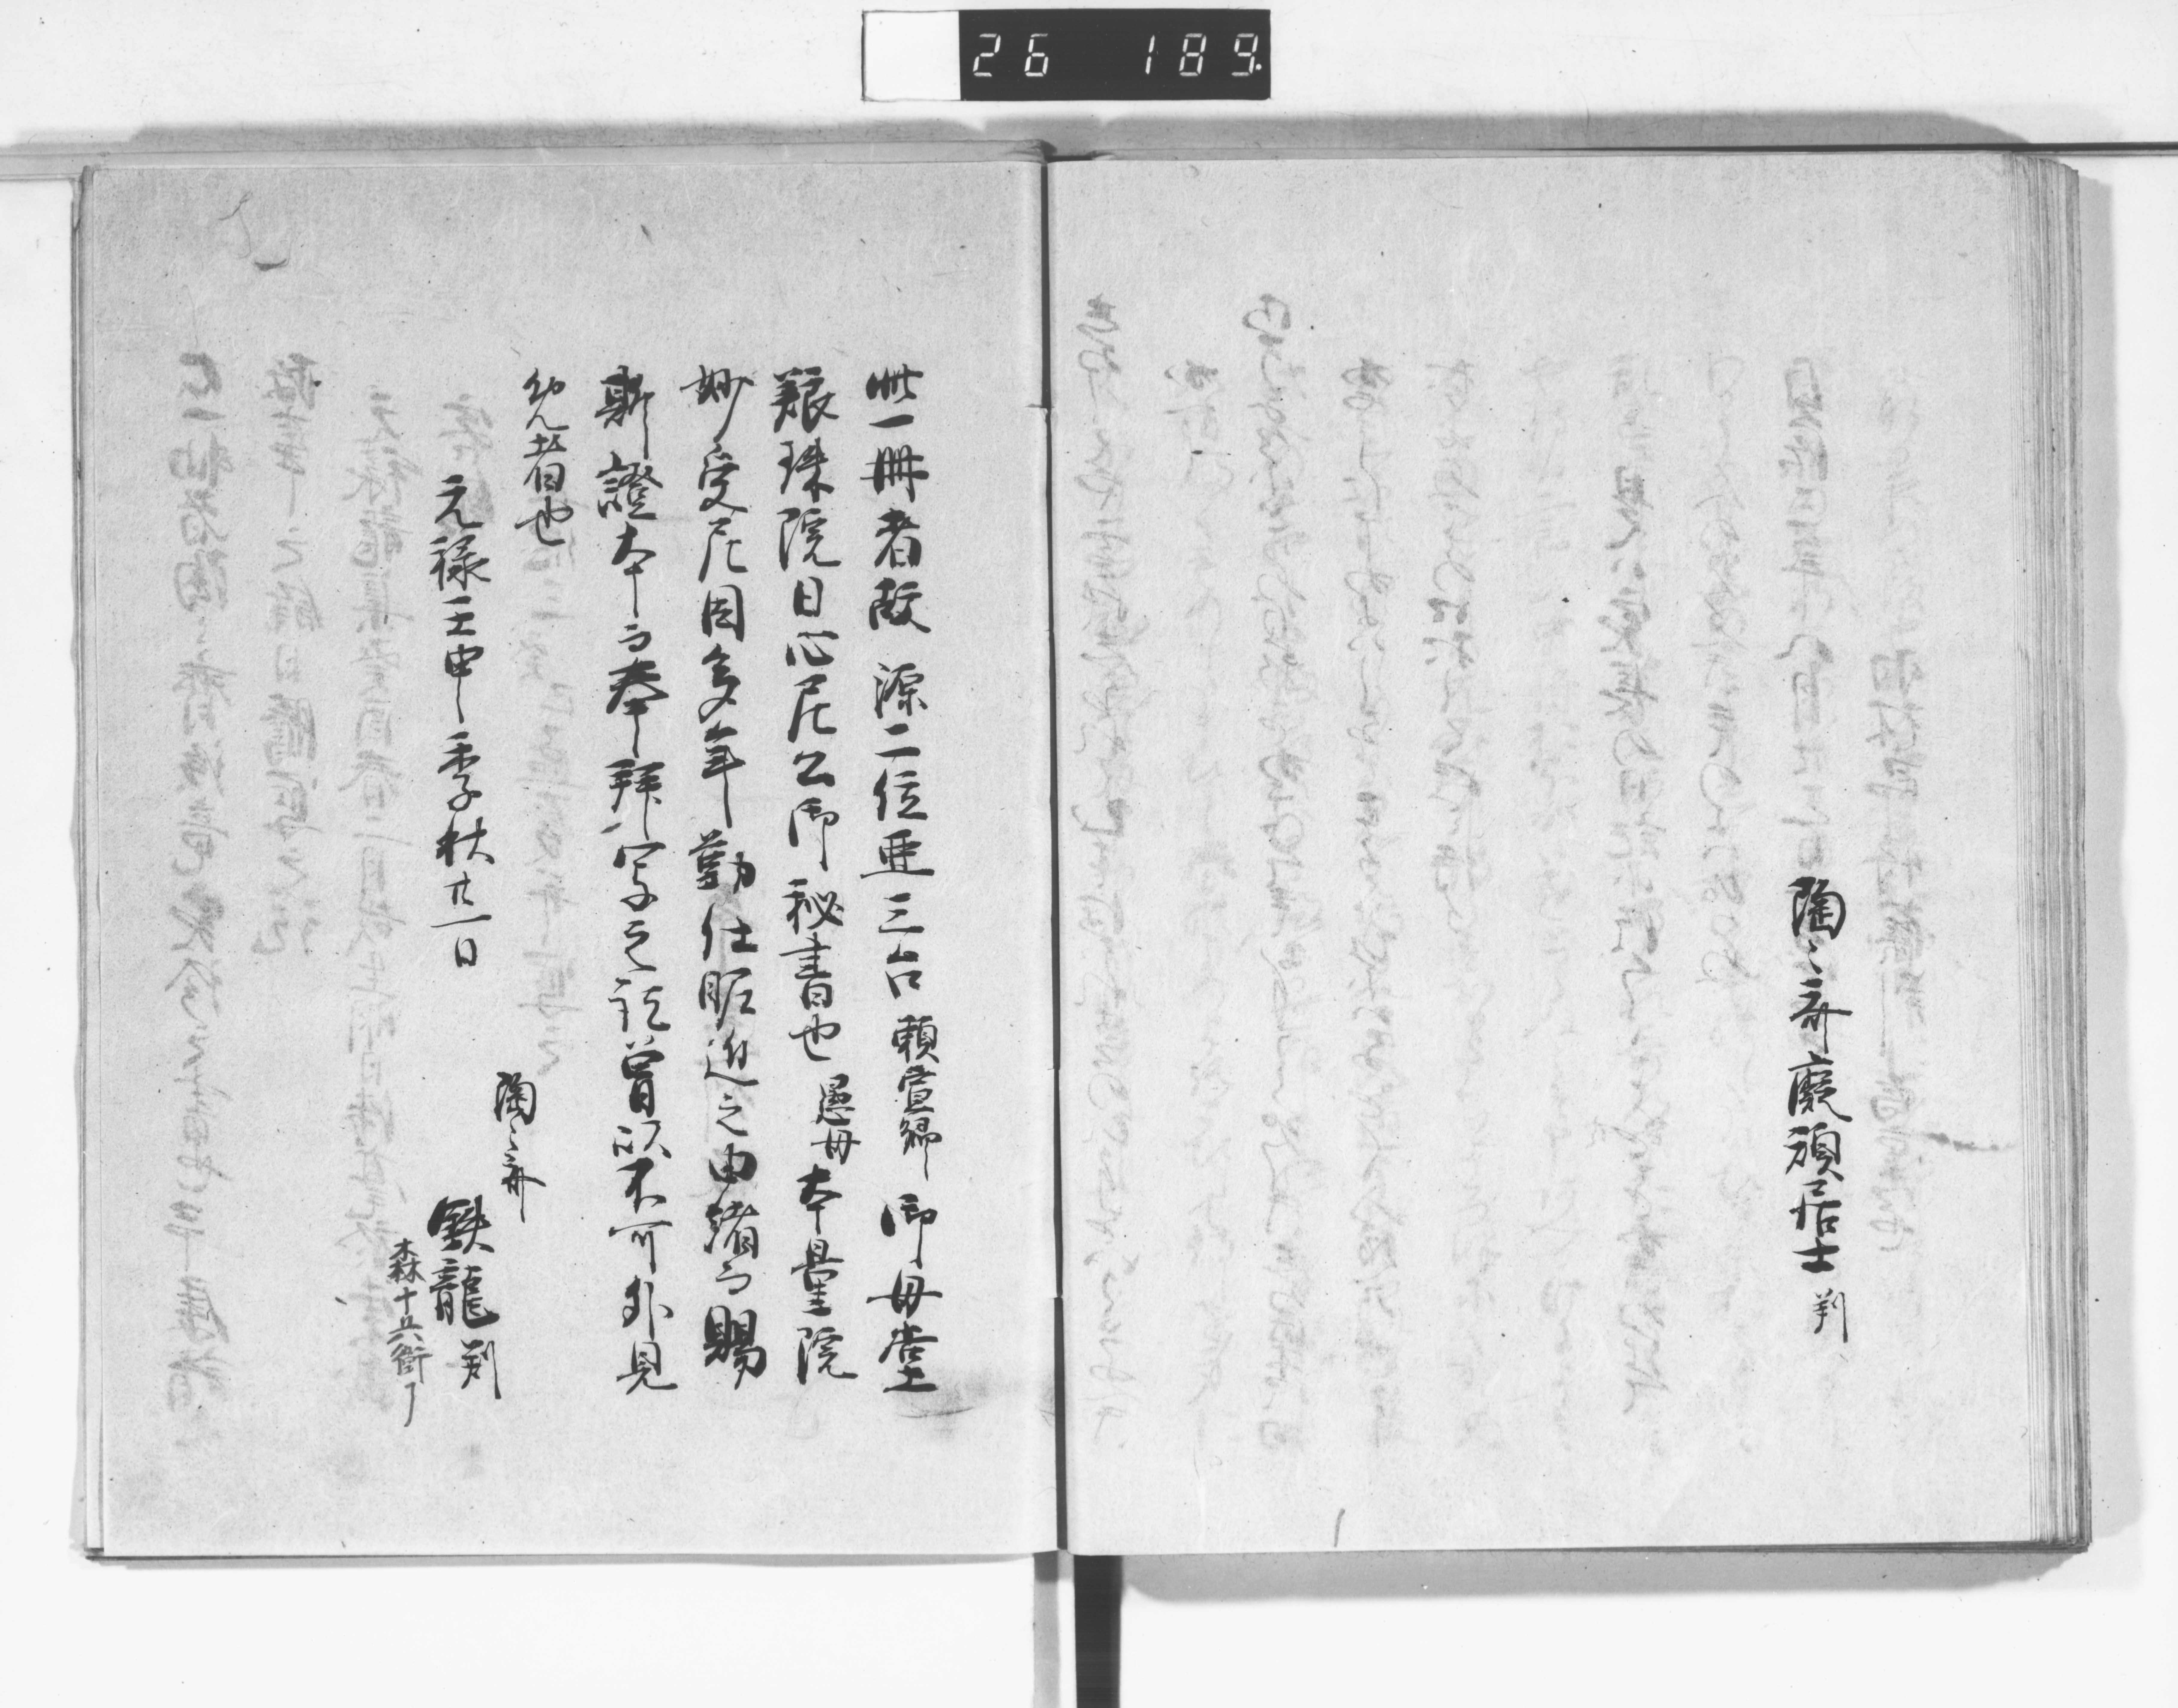 26 189
陶々斎癡頑居士 判
此一冊者故 源二位亜三台 頼宣卿 御母堂
養珠院日心尼公御秘書也 愚母 本量院
妙受尼因多年勤仕昵近之由緒而賜
斯證本而奉拝写之訖曽以不可外見
他者也
元禄壬申季秋廿一日
陶々斎
鉄龍 判
森十兵衛了